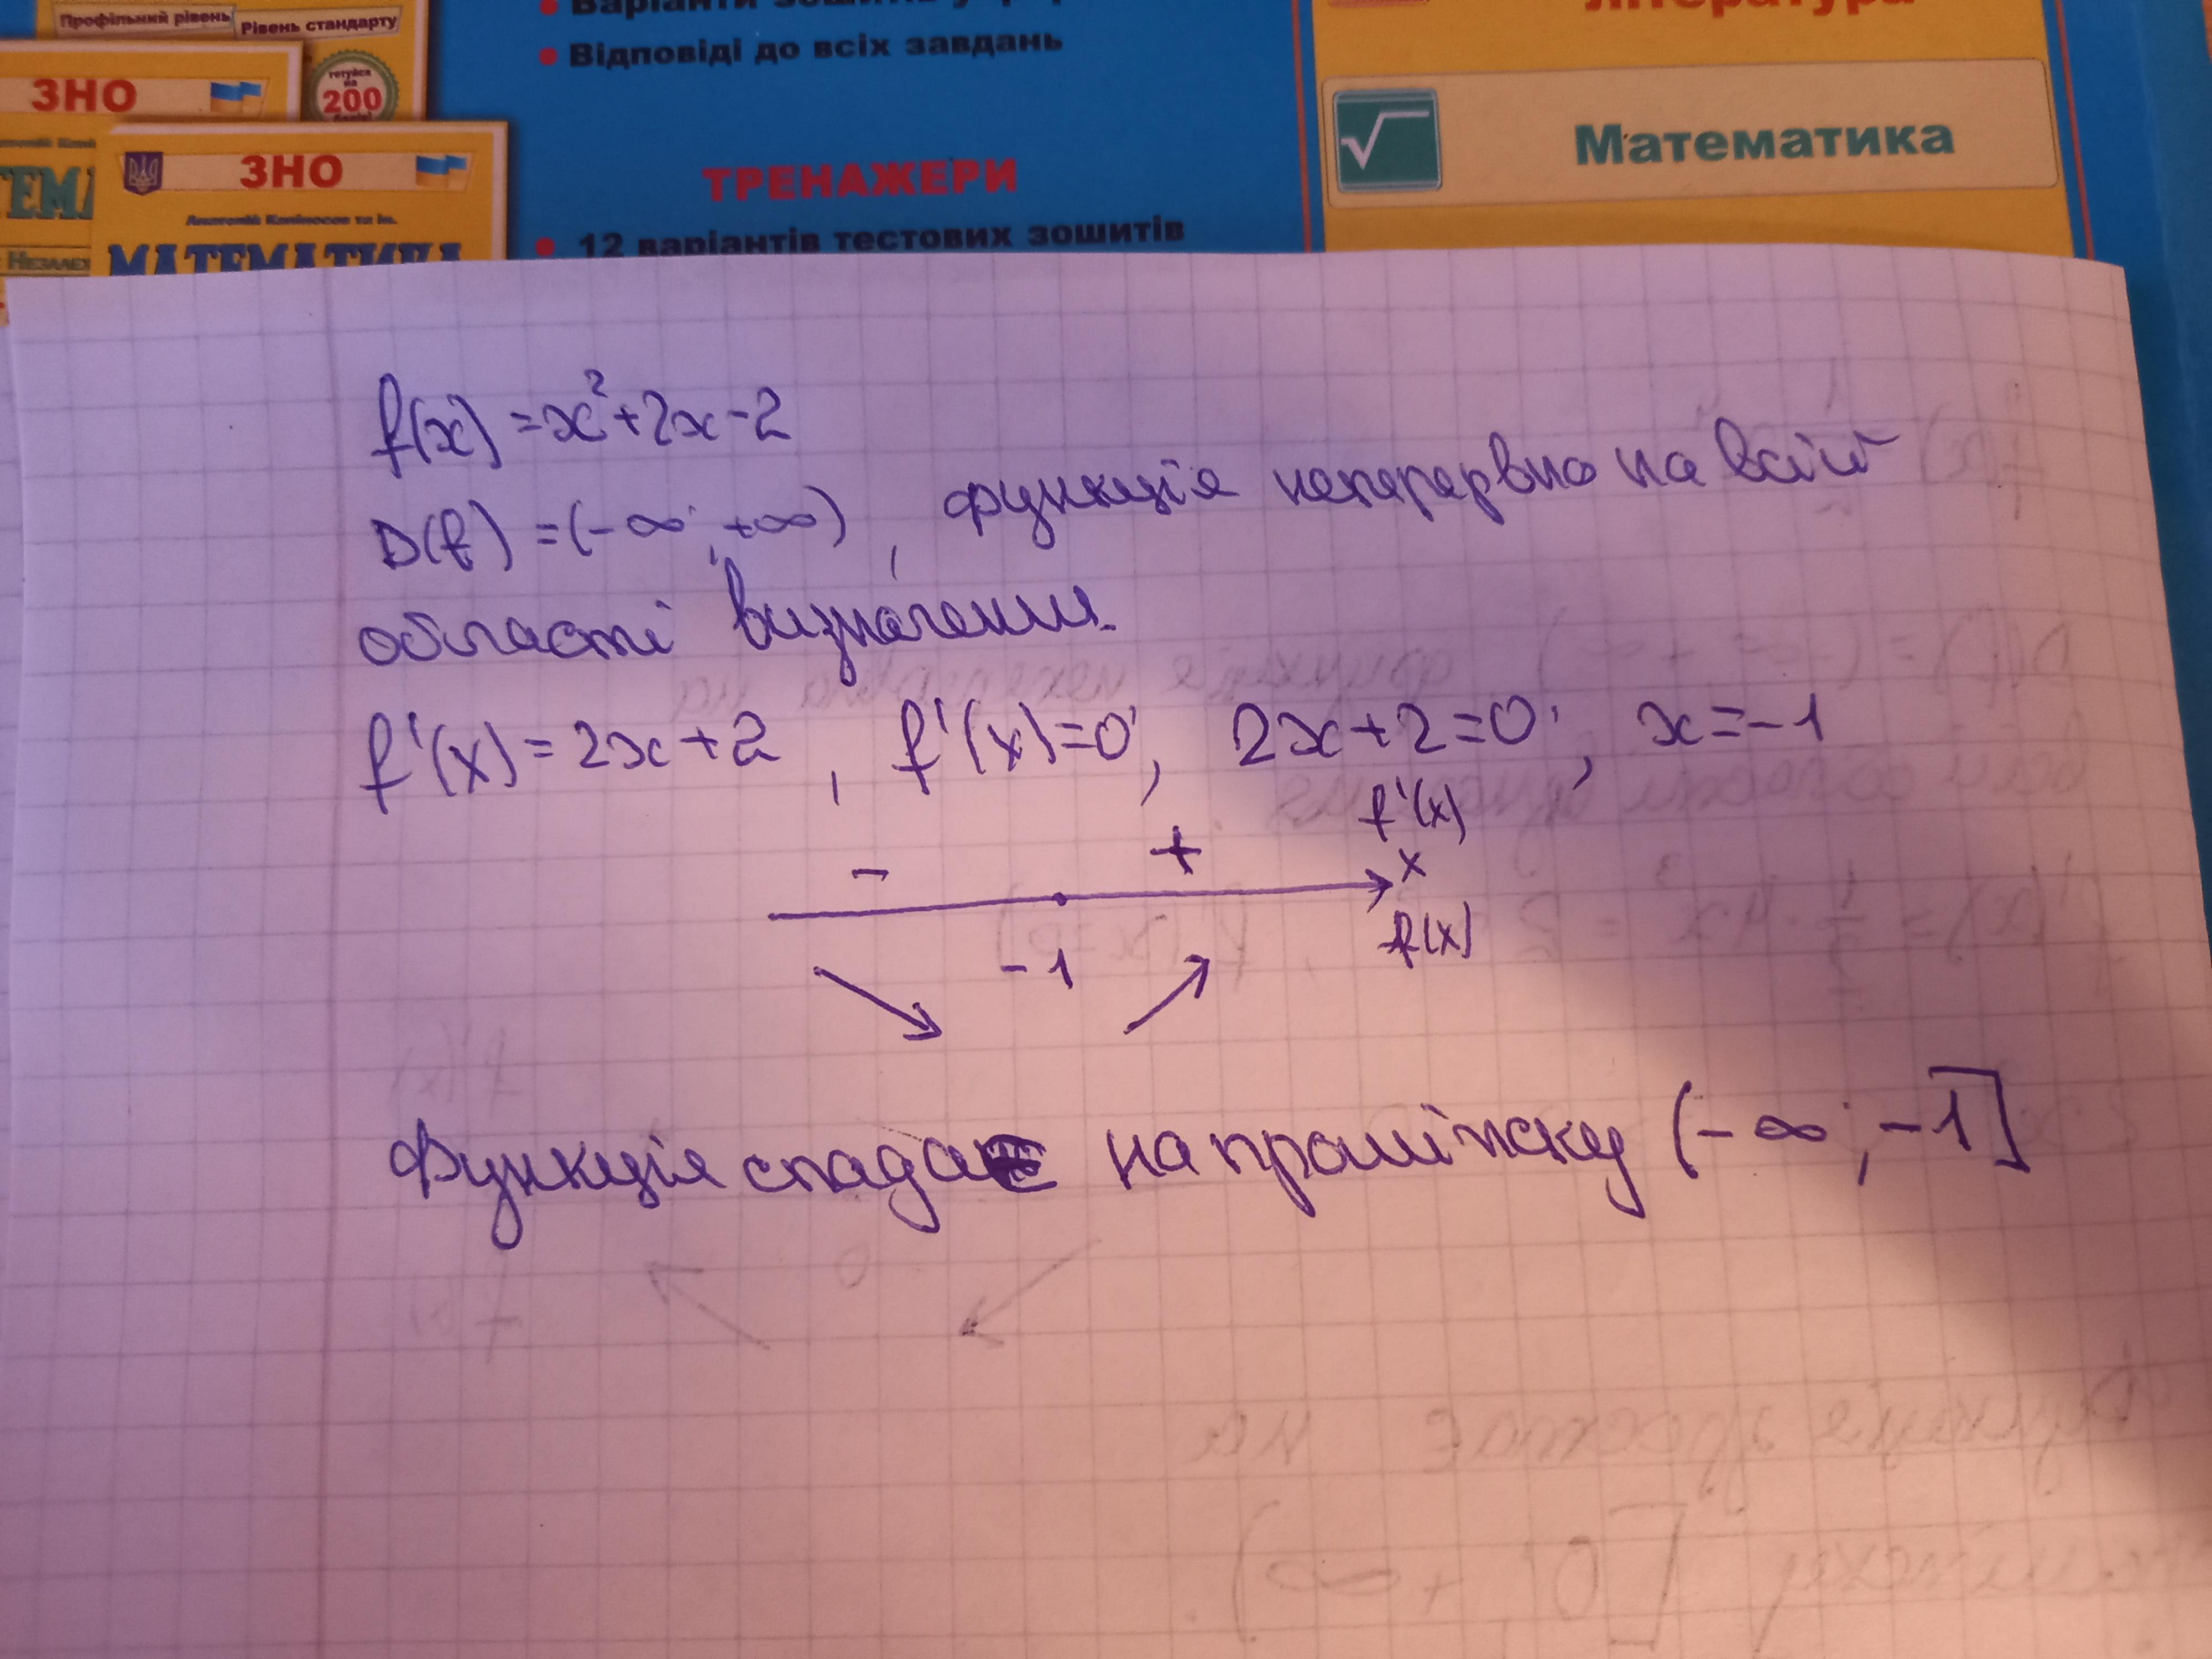 Профільний рівень
Рівень стандарту
готуйся на 200 балів!
ЗНО
ЗНО
Анатолій Капіносов та ін.
МАТЕМАТИКА
• Відповіді до всіх завдань
ТРЕНАЖЕРИ
• 12 варіантів тестових зошитів
література
Математика
f(x) = x² + 2x - 2
D(f) = (-∞; +∞), функція неперервна на всій
області визначення.
f'(x) = 2x + 2, f'(x) = 0; 2x + 2 = 0; x = -1
f'(x)
- + x
-1 f(x)
Функція спадає на проміжку (-∞; -1]